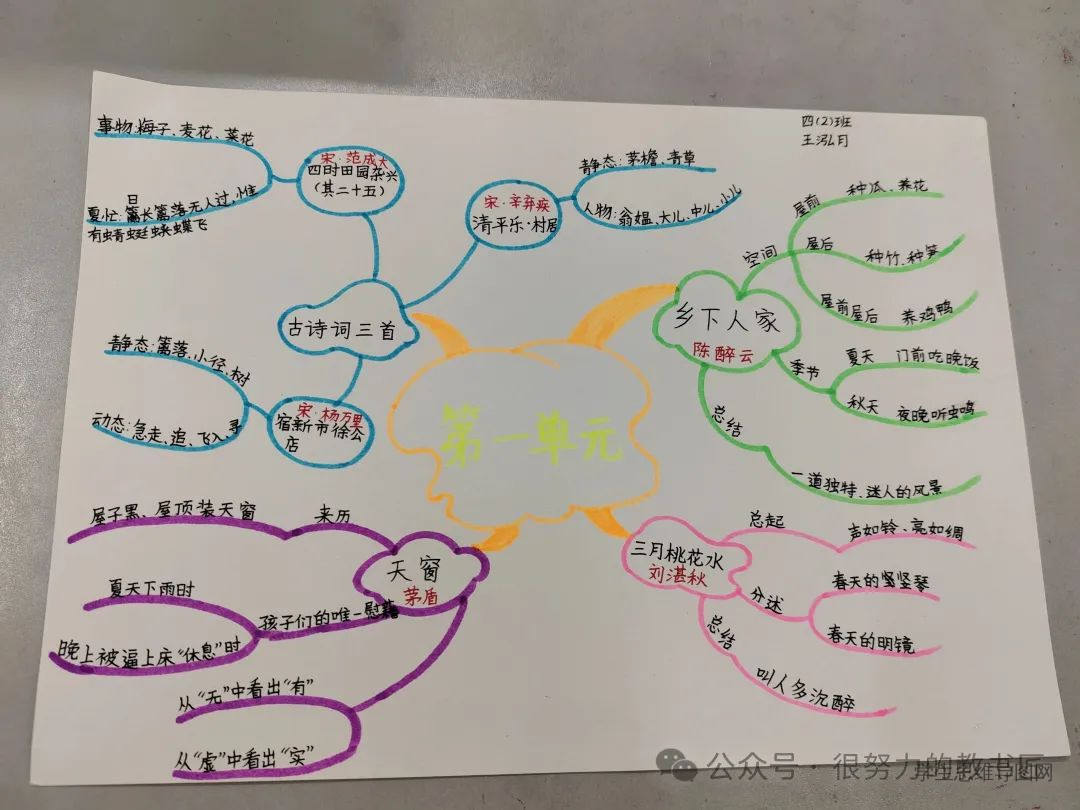 四(2)班
王泓月
第一单元
古诗词三首
宋·范成大
四时田园杂兴
(其二十五)
事物:梅子、麦花、菜花
日
夏忙:篱长篱落无人过,惟
有蜻蜓蛱蝶飞
宋·辛弃疾
清平乐·村居
静态:茅檐、青草
人物:翁媪、大儿、中儿、小儿
宋·杨万里
宿新市徐公
店
静态:篱落、小径、树
动态:急走、追、飞入、寻
乡下人家
陈醉云
空间
屋前
种瓜、养花
屋后
种竹、种笋
屋前屋后
养鸡鸭
季节
夏天 门前吃晚饭
秋天 夜晚听虫鸣
总结
一道独特、迷人的风景
天窗
茅盾
来历
屋子黑、屋顶装天窗
孩子们的唯一慰藉
夏天下雨时
晚上被逼上床“休息”时
从“无”中看出“有”
从“虚”中看出“实”
三月桃花水
刘湛秋
总起
声如铃、亮如绸
分述
春天的竖竖琴
春天的明镜
总结
叫人多沉醉
公众号·很努力的教书匠
思维导图网